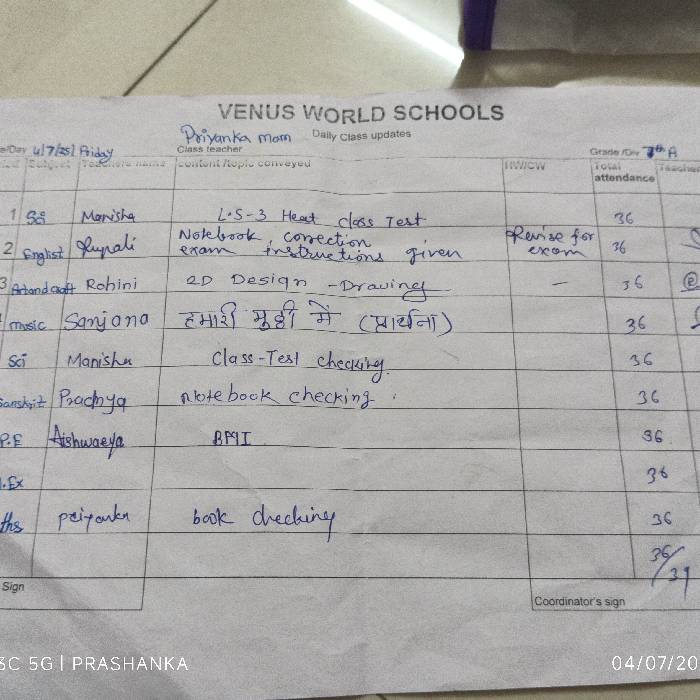 VENUS WORLD SCHOOLS
Priyanka mam Daily Class updates
e/Day 4/7/25/ Friday Class teacher Grade /Div 7th A
Subject Teachers name content /topic conveyed HW/CW Total attendance Teacher
1 Sci Manisha L.S-3 Heat class Test 36
2 English Rupali Notebook correction exam instructions given Revise for exam 36
3 Art and craft Rohini 2D Design - Drawing — 36
music Sanjana हमारी मुठ्ठी में (प्रार्थना) 36
Sci Manisha Class-Test checking. 36
Sanskrit Pradnya Notebook checking. 36
P.E Aishwarya BMI 36
.Ex 36
ths priyanka book checking 36
36/39
Sign Coordinator's sign
3C 5G | PRASHANKA 04/07/20